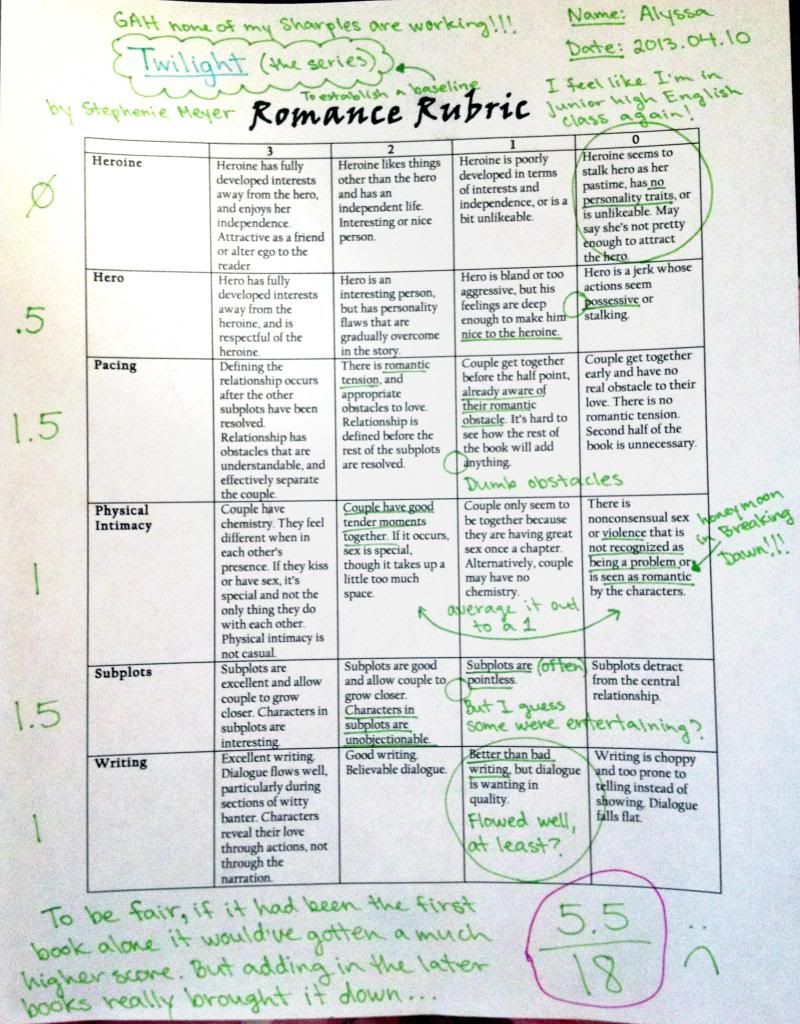 GAH none of my Sharpies are working!!!
Name: Alyssa
Date: 2013.04.10
Twilight (the series)
To establish a baseline
by Stephenie Meyer
I feel like I'm in
junior high English
class again!
Romance Rubric
3
2
1
0
Ø
Heroine
Heroine has fully
developed interests
away from the hero,
and enjoys her
independence.
Attractive as a friend
or alter ego to the
reader
Heroine likes things
other than the hero
and has an
independent life.
Interesting or nice
person.
Heroine is poorly
developed in terms
of interests and
independence, or is a
bit unlikeable.
Heroine seems to
stalk hero as her
pastime, has no
personality traits, or
is unlikeable. May
say she's not pretty
enough to attract
the hero.
.5
Hero
Hero has fully
developed interests
away from the
heroine, and is
respectful of the
heroine.
Hero is an
interesting person,
but has personality
flaws that are
gradually overcome
in the story.
Hero is bland or too
aggressive, but his
feelings are deep
enough to make him
nice to the heroine.
Hero is a jerk whose
actions seem
possessive or
stalking.
1.5
Pacing
Defining the
relationship occurs
after the other
subplots have been
resolved.
Relationship has
obstacles that are
understandable, and
effectively separate
the couple.
There is romantic
tension, and
appropriate
obstacles to love.
Relationship is
defined before the
rest of the subplots
are resolved.
Couple get together
before the half point,
already aware of
their romantic
obstacle. It's hard to
see how the rest of
the book will add
anything.
Dumb obstacles
Couple get together
early and have no
real obstacle to their
love. There is no
romantic tension.
Second half of the
book is unnecessary.
1
Physical
Intimacy
Couple have
chemistry. They feel
different when in
each other's
presence. If they kiss
or have sex, it's
special and not the
only thing they do
with each other.
Physical intimacy is
not casual.
Couple have good
tender moments
together. If it occurs,
sex is special,
though it takes up a
little too much
space.
Couple only seem to
be together because
they are having great
sex once a chapter.
Alternatively, couple
may have no
chemistry.
average it out
to a 1
There is
nonconsensual sex
or violence that is
not recognized as
being a problem or
is seen as romantic
by the characters.
honeymoon
in Breaking
Dawn!!!
1.5
Subplots
Subplots are
excellent and allow
couple to grow
closer. Characters in
subplots are
interesting.
Subplots are good
and allow couple to
grow closer.
Characters in
subplots are
unobjectionable.
Subplots are (often)
pointless.
But I guess
some were entertaining?
Subplots detract
from the central
relationship.
1
Writing
Excellent writing.
Dialogue flows well,
particularly during
sections of witty
banter. Characters
reveal their love
through actions, not
through the
narration.
Good writing.
Believable dialogue.
Better than bad
writing, but dialogue
is wanting in
quality.
Flowed well,
at least?
Writing is choppy
and too prone to
telling instead of
showing. Dialogue
falls flat.
To be fair, if it had been the first
book alone it would've gotten a much
higher score. But adding in the later
books really brought it down...
5.5
18